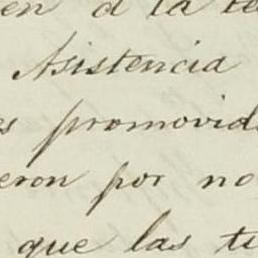 en á la te
Asistencia
s promovid
eron por no
que las ti